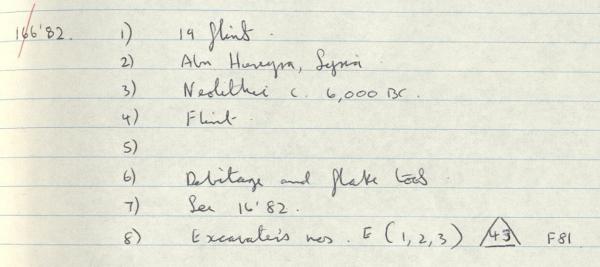 166'82. 1) 19 flint.
2) Abu Hureyra, Syria
3) Neolithic c. 6,000 BC.
4) Flint.
5)
6) Debitage and flake tools.
7) See 16'82.
8) Excavator's nos. E (1,2,3) 43 F81